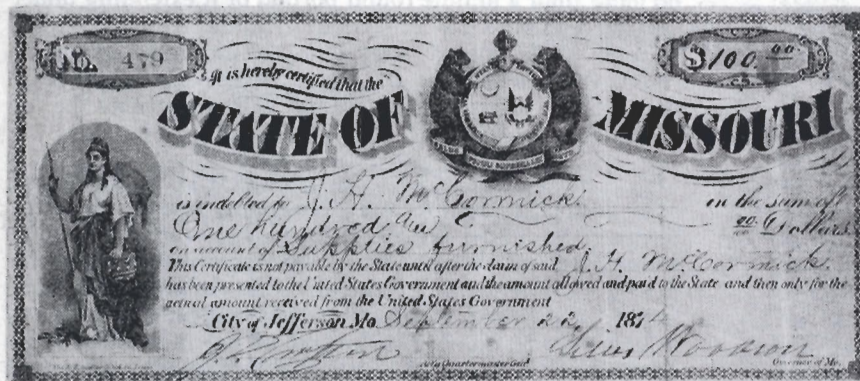 No. 479
$100.00
It is hereby certified that the
STATE OF MISSOURI
is indebted to J. H. McCormick in the sum of
One hundred 00 Dollars
on account of Supplies furnished.
This Certificate is not payable by the State until after the claim of said J. H. McCormick
has been presented to the United States Government and the amount allowed and paid to the State and then only for the
actual amount received from the United States Government
City of Jefferson Mo September 22 187
Silas Woodson
Quartermaster Genl. Governor of Mo.